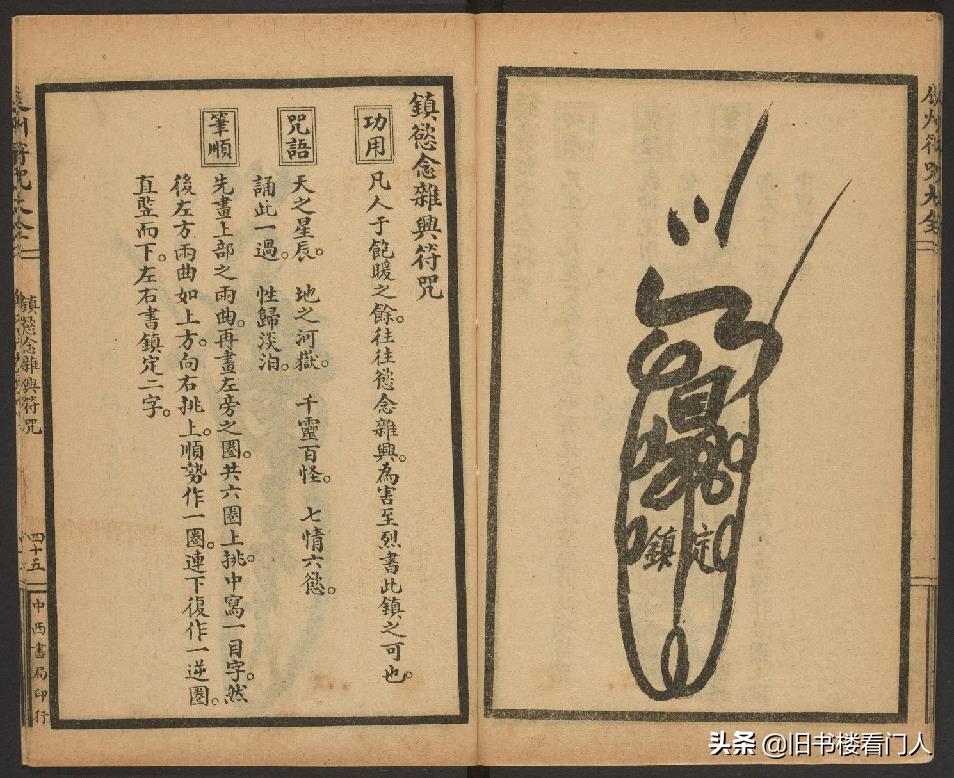 鎮定
鎮慾念雜興符咒
功用
凡人于飽暖之餘。往往慾念雜興。為害至烈書此鎮之可也。
咒語
天之星辰。 地之河嶽。 千靈百怪。 七情六慾。
誦此一過。 性歸淡泊。
筆順
先畫上部之兩曲。再畫左旁之圈。共六圈上挑。中寫一目字。然
後左方兩曲如上方。向右挑上。順勢作一圈。連下復作一逆圈。
直竪而下。左右書鎮定二字。
鎮慾念雜興符咒
四十五
中西書局印行
头条 @旧书楼看门人